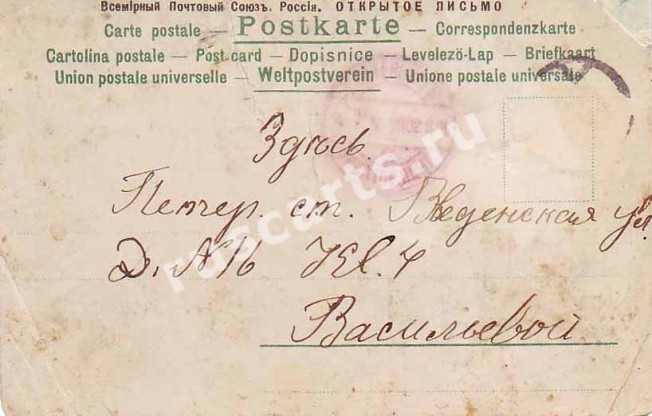 Всемірный Почтовый Союзъ. Россія. ОТКРЫТОЕ ПИСЬМО
Carte postale — Postkarte — Correspondenzkarte
Cartolina postale — Post card — Dopisnice — Levelező-Lap — Briefkaart
Union postale universelle — Weltpostverein — Unione postale universale
Здѣсь.
Петер. ст. Введенская ул
Д. № 16 Кв. 4
Васильевой
ruscarts.ru